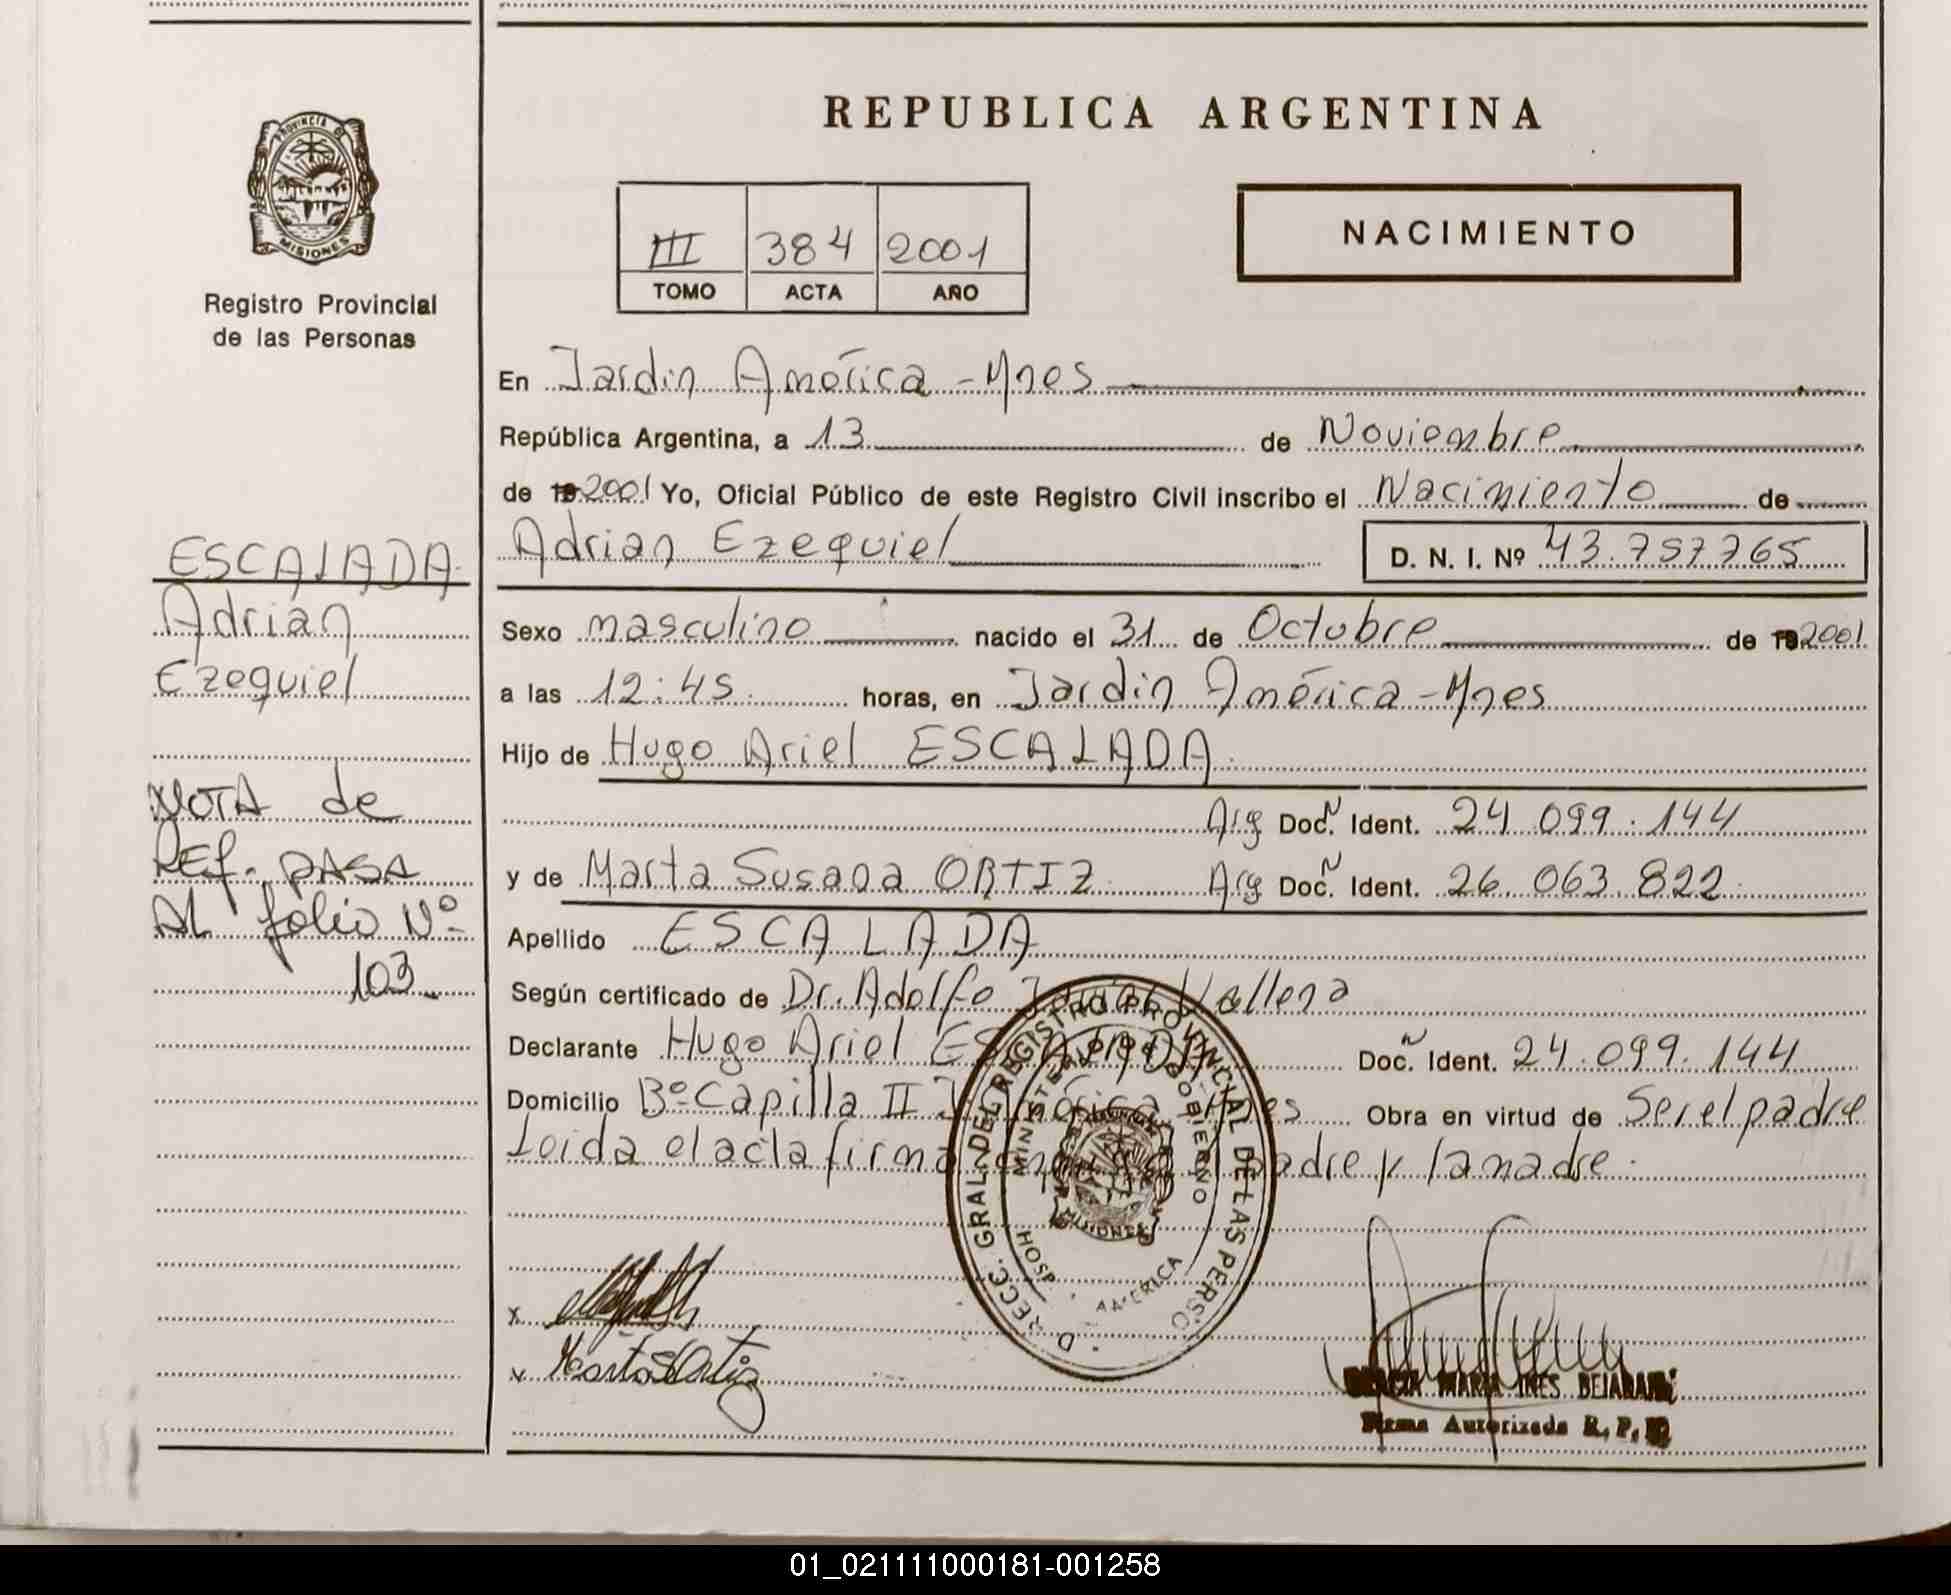 REPUBLICA ARGENTINA
PROVINCIA DE
MISIONES
Registro Provincial
de las Personas
III 384 2001
TOMO ACTA AÑO
NACIMIENTO
En Jardin América - Mnes
República Argentina, a 13 de Noviembre
de 19 2001 Yo, Oficial Público de este Registro Civil inscribo el Nacimiento de
Adrian Ezequiel D. N. I. Nº 43.757765
ESCALADA
Adrian
Ezequiel
Sexo masculino nacido el 31 de Octubre de 19 2001
a las 12:45 horas, en Jardin América - Mnes
Hijo de Hugo Ariel ESCALADA
Arg Doc. Ident. 24 099.144
y de Marta Susana ORTIZ Arg Doc. Ident. 26.063.822
NOTA de
REF. PASA
AL folio Nº
103
Apellido ESCALADA
Según certificado de Dr. Adolfo
Declarante Hugo Ariel ESCALADA Doc. Ident. 24.099.144
Domicilio Bº Capilla II J. América Mnes Obra en virtud de Ser el padre
Leida el acta firma padre y la madre.
D RECC. GRAL. DEL REGISTRO PROVINCIAL DE LAS PERSO
MINISTERIO DE GOBIERNO
MISIONES
HOSP. AMERICA
x
x Marta S Ortiz
MARIA INES BEJARANO
Firma Autorizada R. P. P.
01_021111000181-001258